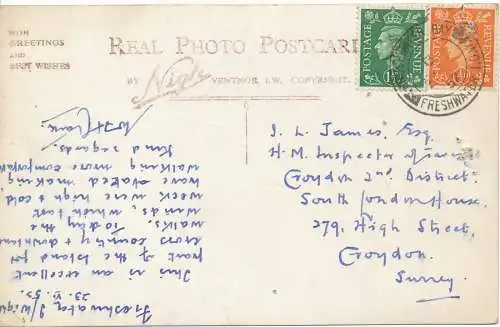 WITH
GREETINGS
AND
BEST WISHES
REAL PHOTO POSTCARD
BY Nigh VENTNOR, I.W. COPYRIGHT.
POSTAGE
REVENUE
FRESHWA
I. L. James, Esq.
H.M. Inspector of Taxes
Croydon 2nd District,
South London House,
279, High Street,
Croydon.
Surrey.
Freshwater, I/Wight
23.VI.53.
This is an excellent
part of the Island for
cross country & downland
walks. Today the
winds, which last
week were high & cold
were slaked making
walking more comfortable
Kind regards.